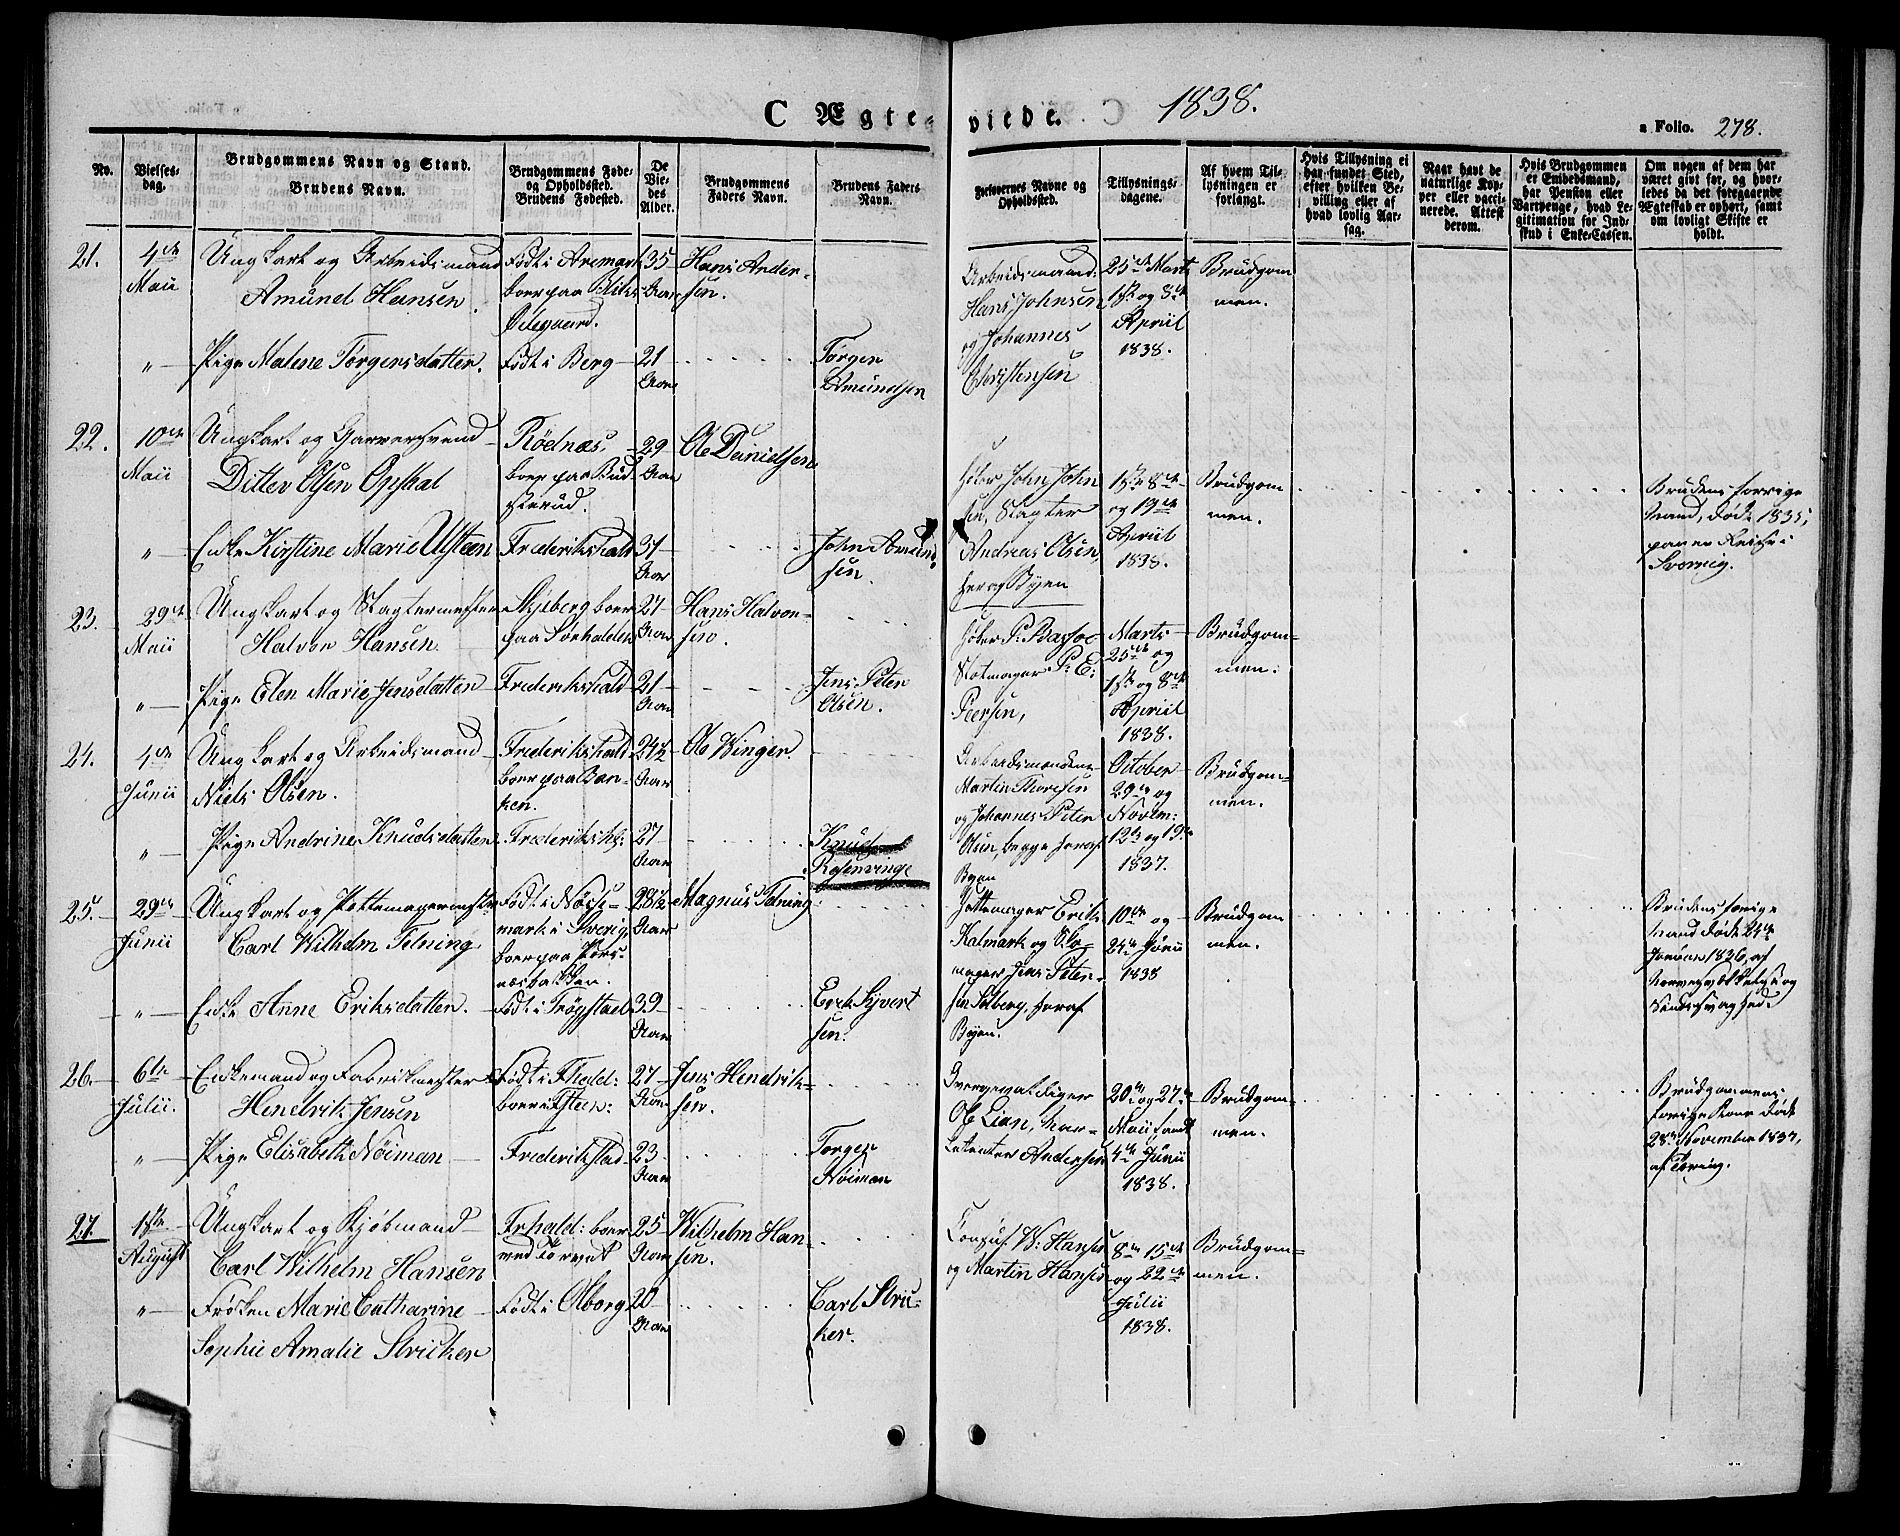 C Ægte-viede. 1838.
a Folio. 278.
No.
Vielses-dag.
Brudgommens Navn og Stand.
Brudens Navn.
Brudgommens Føde- og Opholdssted.
Brudens Fødested.
De Viedes Alder.
Brudgommens Faders Navn.
Brudens Faders Navn.
Forlovernes Navne og Opholdssted.
Tillysnings-dagene.
Af hvem Tillysningen er forlangt.
Hvis Tillysning ei har fundet Sted, efter hvilken Bevilling eller af hvad lovlig Aarsag.
Naar havt de naturlige Kopper eller vaccinerede. Attest derom.
Hvis Brudgommen er Embedsmand, har Pension eller Vartpenge, hvad Legitimation for Indskud i Enke-Cassen.
Om nogen af dem har været gift før, og hvorledes da det foregaaende Ægteskab er ophørt, samt om lovligt Skifte er holdt.
21. 4de Maii
Ungkarl og Arbeidsmand
Amund Hansen
Født i Aremark
boer paa
Ødegaard.
35 Aar
Hans Andersen.
Arbeidsmænd:
Hans Johnsen
og Johannes
Christensen
25de Marts
1ste og 8de
Apriil
1838.
Brudgommen.
" Pige Malene Torgersdatter.
Født i Berg
21 Aar
Torger
Amundsen
22. 10de Maii
Ungkarl og Garversvend
Ditlev Olsen Opsal
Rødnæs,
boer paa
29 Aar
Ole Danielsen
John Johnsen, Slagter
Andreas Olsen,
her af Byen
1ste 8de
og 19de
Apriil
1838.
Brudgommen.
Brudens forrige
Mand, døde 1835,
" Enke Kirstine Marie Ulsteen
Frederikshald
37 Aar
John Amundsen.
23. 29de Maii
Ungkarl og Slagtermester
Halvor Hansen
Skjeberg boer
paa Sørhalden
27 Aar
Hans Halvorsen.
P: Basso
P: E:
Peersen,
Marts
25de og
1ste og 8de
Apriil
1838.
Brudgommen.
" Pige Elen Marie Jensdatter
Frederikshald
21 Aar
Jens Peter
Olsen.
24. 4de Junii
Ungkarl og Arbeidsmand
Niels Olsen.
Frederikshald
boer paa Banken.
24½ Aar
Ole Winger.
Arbeidsmændene
Martin Thoresen
og Johannes Peter
Olsen, begge her af
Byen
October
29de og
Novem:
12te og 19de
1837.
Brudgommen.
" Pige Andrine Knudsdatter
Frederiksh:
27 Aar
Knud
Rosenvinge
25. 29de Junii
Ungkarl og Pottemagermester
Carl Wilhelm Telning
Født i
mark i Sverig,
boer paa
28½ Aar
Magnus Telning
Pottemager Erik
Kalmark og
mager Jens Petersen Solberg, her af
Byen.
10de og
24de Junii
1838
Brudgommen.
Brudens forrige
Mand døde 24de
Januar 1836, af
" Enke Anne Eriksdatter.
Født i Trøgstad
39 Aar
Erik Syvertsen.
26. 6te Julii.
Enkemand og Fabrikmester
Hendrik Jensen
Født i Fhald:
27 Aar
Jens Hendriksen.
Ole Lian,
Andersen
20de og 27de
Maii samt
4de Junii
1838.
Brudgommen.
Brudgommens
forrige Kone døde
28de November 1837,
af Tæring.
" Pige Elisabeth Nöiman
Frederikstad
23 Aar
Torger
Nöiman
27. 1ste August
Ungkarl og Kjøbmand
Carl Wilhelm Hansen
Frhald: boer
ved Torvet
25 Aar
Wilhelm Hansen.
Consul W: Hansen
og Martin Hansen
8de 15de
og 22de
Julii
1838.
Brudgommen.
" Frøken Marie Catharine
Sophie Amalie Stricker
Født i Olborg
20 Aar
Carl Stricker.